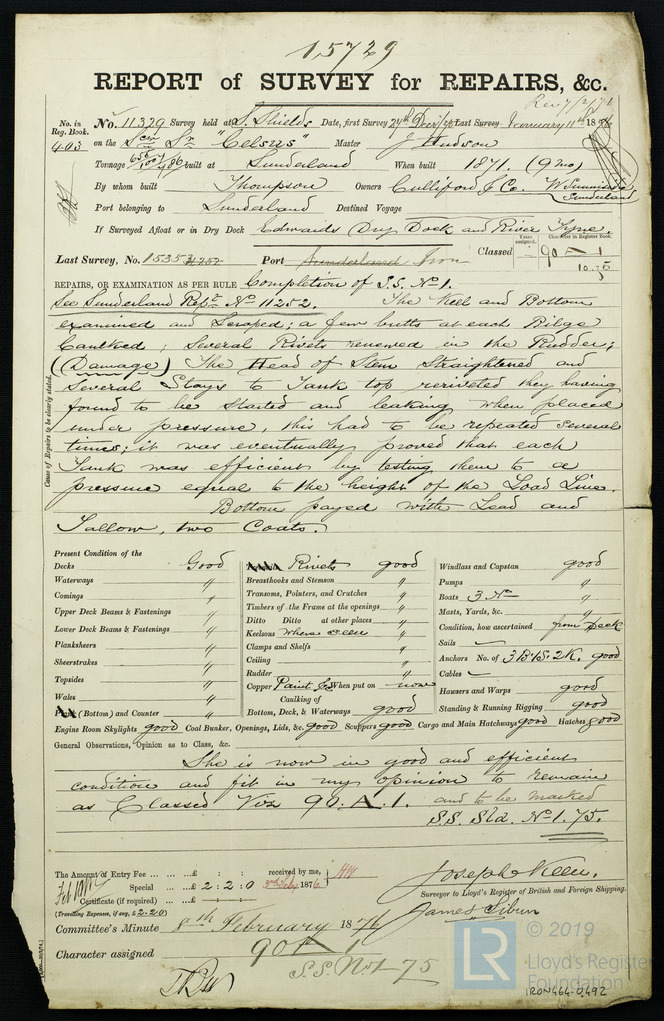 15729
REPORT of SURVEY for REPAIRS, &c.
Rec 7/2/76
No. in Reg. Book. No. 11329 Survey held at S. Shields Date, first Survey 27th Decr/75 Last Survey February 1st 1876
403 on the Scr Sr "Celsus" Master J Hudson
Tonnage 656 1001 486 built at Sunderland When built 1871. (9 mo)
By whom built Thompson Owners Culliford & Co.
Port belonging to Sunderland Destined Voyage Sunderland
If Surveyed Afloat or in Dry Dock Edwards Dry Dock and River Tyne.
Years assigned. Character in Register Book.
Last Survey, No. 15353 11252 Port Sunderland Iron Classed 90 A 1
10.75
REPAIRS, OR EXAMINATION AS PER RULE Completion of S.S. No 1.
See Sunderland Rept No 11252. The Keel and Bottom
examined and Scraped; a few butts at each Bilge
Caulked; Several Rivets renewed in the Rudder;
(Damage) The Head of Stem Straightened and
Several Stays to Tank top reriveted they having
found to be Started and leaking when placed
under pressure, this had to be repeated several
times; it was eventually proved that each
Tank was efficient by testing them to a
pressure equal to the height of the Load Line.
Bottom payed with Lead and
Tallow, two Coats.
Cause of Repairs to be clearly stated.
Present Condition of the
Decks Good
Waterways "
Comings "
Upper Deck Beams & Fastenings "
Lower Deck Beams & Fastenings "
Planksheers "
Sheerstrakes "
Topsides "
Wales "
(Bottom) and Counter "
Rivets good
Breasthooks and Stemson "
Transoms, Pointers, and Crutches "
Timbers of the Frame at the openings "
Ditto Ditto at other places "
Keelsons Where seen "
Clamps and Shelfs "
Ceiling "
Rudder "
Copper Paint &c When put on now
Caulking of
Bottom, Deck, & Waterways good
Windlass and Capstan good
Pumps "
Boats 3 No "
Masts, Yards, &c. "
Condition, how ascertained from Deck
Sails
Anchors No. of 3B.1S.2K. good
Cables
Hawsers and Warps good
Standing & Running Rigging good
Engine Room Skylights good Coal Bunker, Openings, Lids, &c. good Scuppers good Cargo and Main Hatchways good Hatches good
General Observations, Opinion as to Class, &c.
She is now in good and efficient
condition and fit in my opinion to remain
as Classed Viz 90. A. 1. and to be marked
S.S. Sld. No 1. 75.
The Amount of Entry Fee ... £ : : received by me,
Special ... £ 2 : 2 : 0 1876
Certificate (if required) ... £ : :
(Travelling Expenses, if any, £ 2.2.0)
Joseph Keen.
Surveyor to Lloyd's Register of British and Foreign Shipping.
Committee's Minute 8th February 1876
Character assigned 90 A 1
S.S. No 1-75
© 2019
LR
Lloyd's Register
Foundation
IRON464-0492